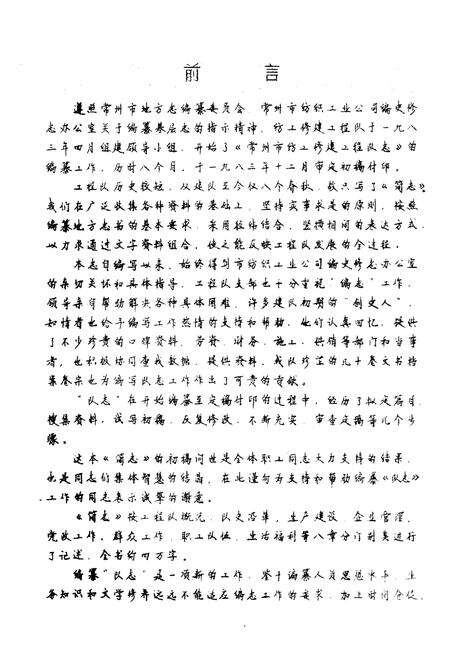 前 言
遵照常州市地方志编纂委员会、常州市纺织工业公司编史修
志办公室关于编纂基层志的指示精神，纺工修建工程队于一九八
三年四月组建领导小组，开始了《常州市纺工修建工程队志》的
编纂工作，历时八个月，于一九八三年十二月审定初稿付印。
工程队历史较短，从建队至今仅八个春秋，故只写了《简志》。
我们在广泛收集各种资料的基础上，坚持实事求是的原则，按照
编纂地方志书的基本要求，采用经纬结合，竖横相间的表达方式，
以力求通过文字资料组合，使之能反映工程队发展的全过程。
本志自编写以来，始终得到市纺织工业公司编史修志办公室
的亲切关怀和具体指导，工程队支部也十分重视“编志”工作，
领导亲自帮助解决各种具体困难，许多建队初期的“创业人”，
知情者也给予编写工作热情的支持和帮助，他们认真回忆，提供
了不少珍贵的口碑资料，劳资、财务、施工、供销等部门和当事
者，也积极协同查找数据，提供资料，我队珍藏的几十卷文书档
案卷宗也为编写队志工作作出了可贵的贡献。
“队志”在开始编纂至定稿付印的过程中，经历了拟定篇目，
搜集资料，试写初稿，反复修改，不断充实，审查定稿等几个步
骤。
这本《简志》的初稿问世是全体职工同志大力支持的结果，
也是同志们集体智慧的结晶，在此谨向为支持和帮助编纂《队志》
工作的同志表示诚挚的谢意。
《简志》按工程队概况、队史沿革、生产建设、企业管理、
党政工作、群众工作、职工队伍、生活福利等八章分门别类进行
了记述，全书约四万字。
编纂“队志”是一项新的工作，鉴于编纂人员思想水平、业
务知识和文学修养远远不能适应编志工作的要求，加上时间仓促，